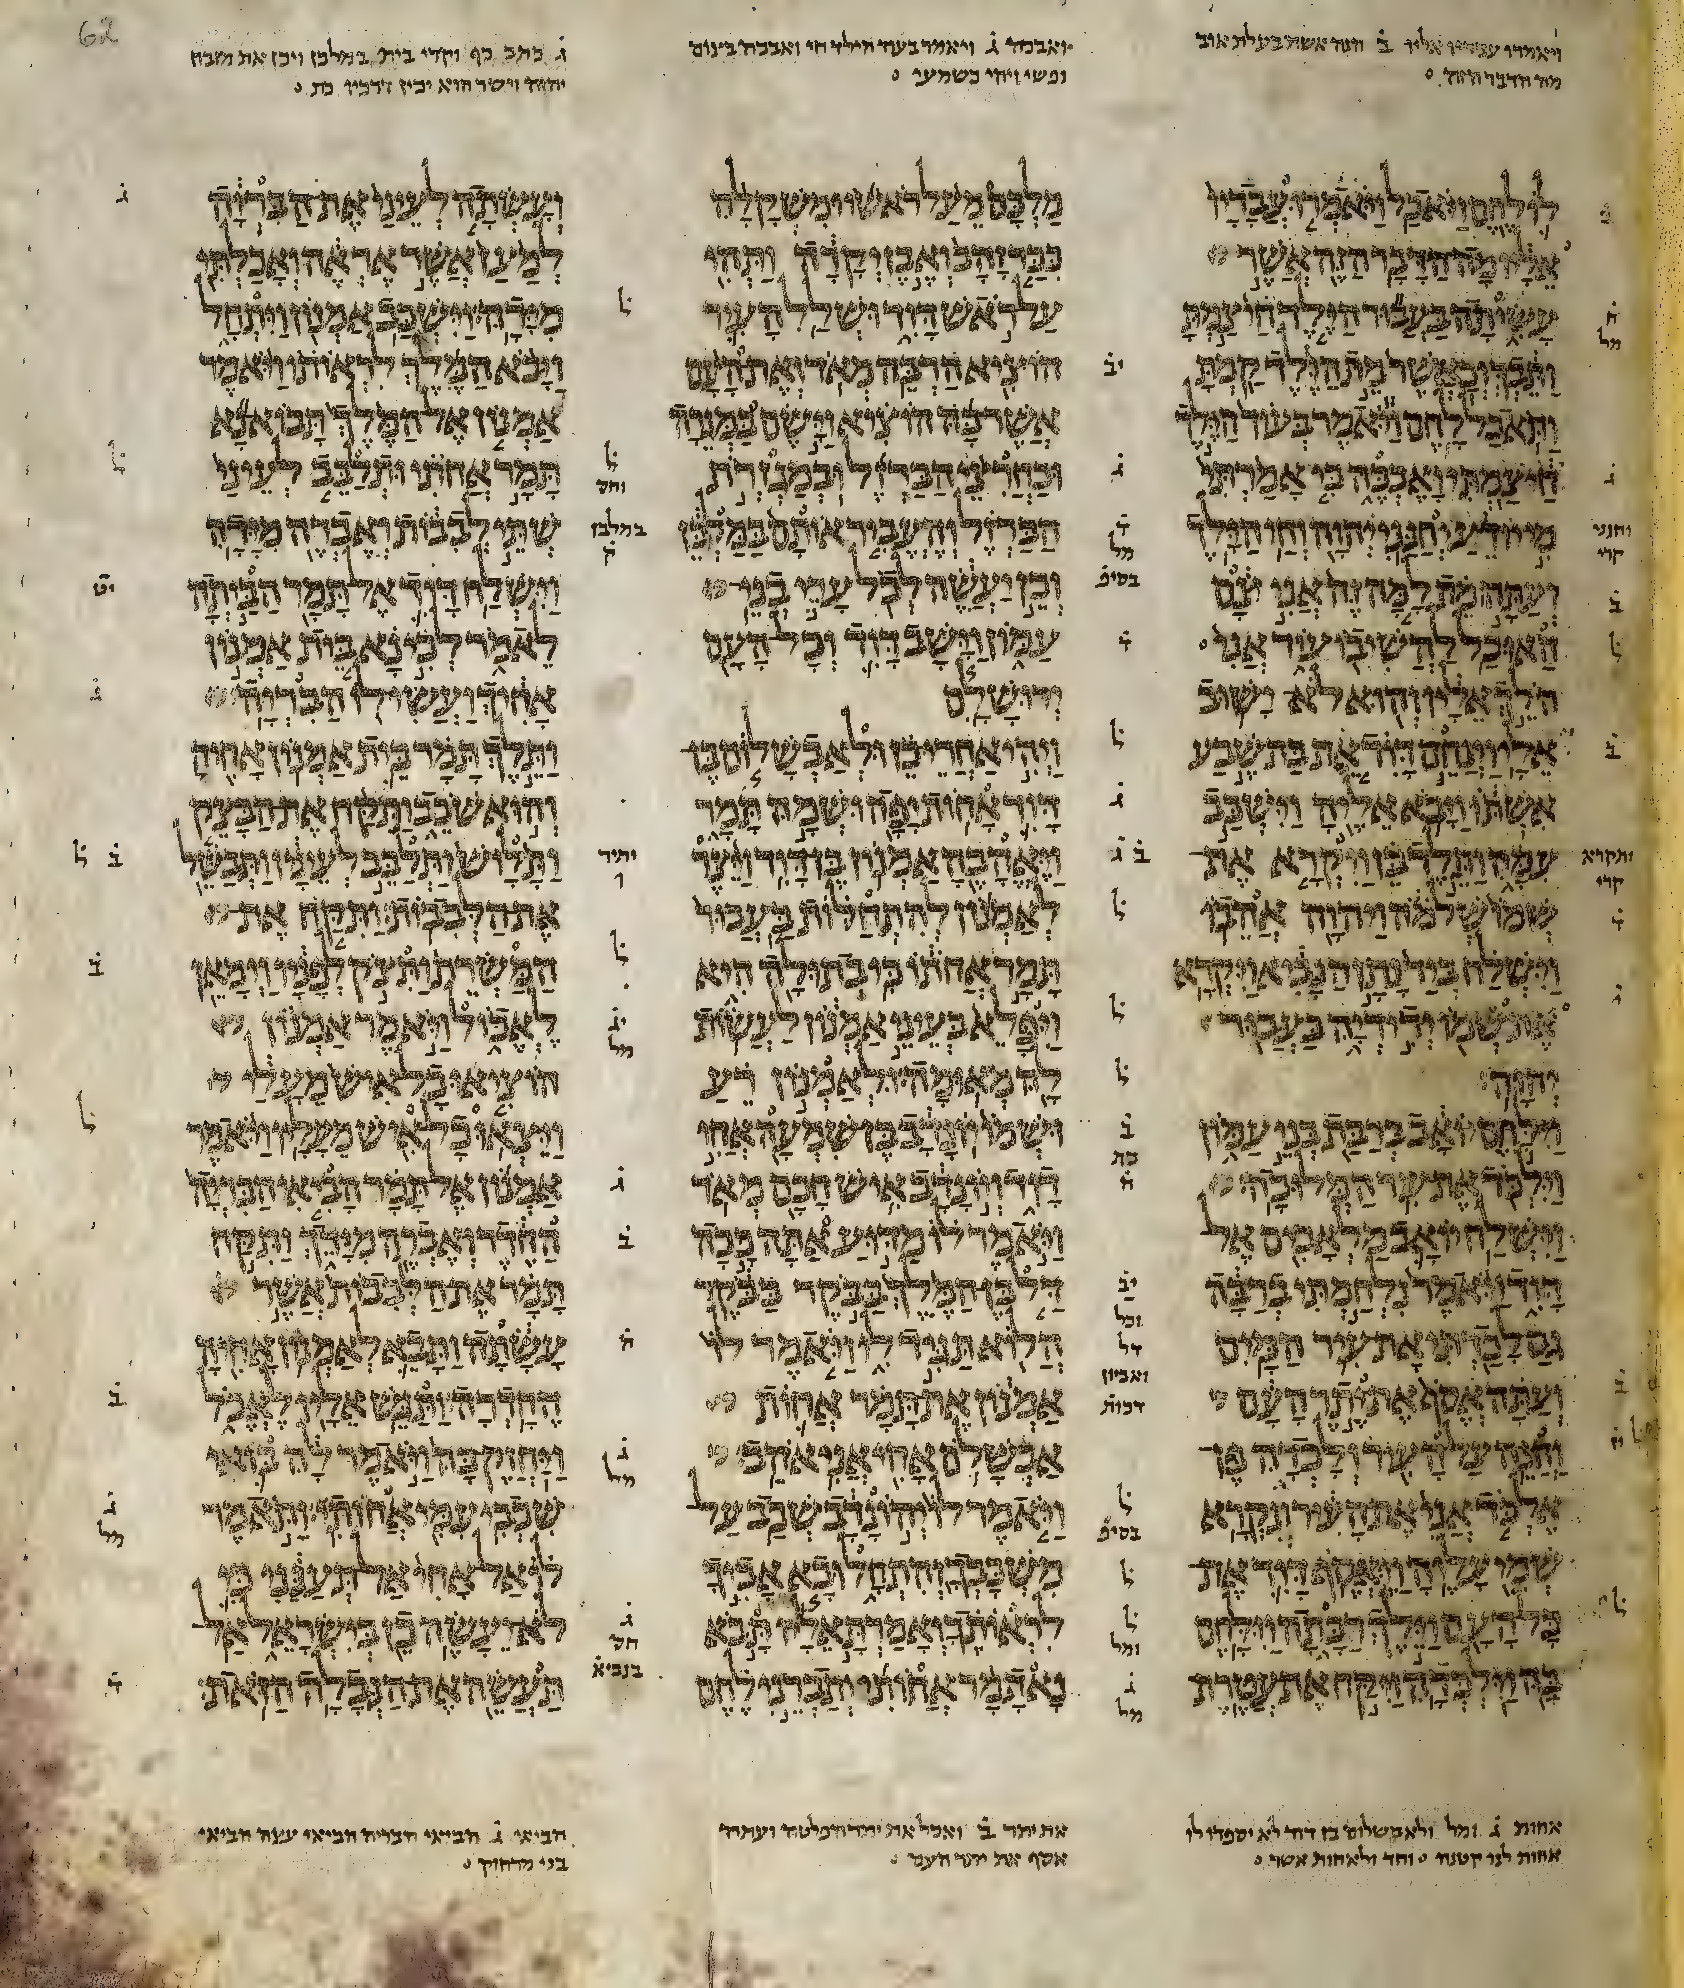 ויאמרו עבדיו אליו ב̇ הנה אשת בעלת אוב
מה הדבר הזה
ואבכה ג̇ ויאמר בעוד הילד חי ואבכה בצום
נפשי ויהי כשמעי
ג̇ כתב כף וקרי בית במלכן ויבן את מזבח
יהוה וישר הוא יבין דרכיו כת
לו לחם ויאכל ויאמרו עבדיו
אליו מה הדבר הזה אשר
עשיתה בעבור הילד חי צמת
ותבך וכאשר מת הילד קמת
ותאכל לחם ויאמר בעוד הילד
חי צמתי ואבכה כי אמרתי
מי יודע יחנני יהוה וחי הילד
ועתה מת למה זה אני צם
האוכל להשיבו עוד אני
הלך אליו והוא לא ישוב
אלי וינחם דוד את בת שבע
אשתו ויבא אליה וישכב
עמה ותלד בן ויקרא את
שמו שלמה ויהוה אהבו
וישלח ביד נתן הנביא ויקרא
את שמו ידידיה בעבור
יהוה
וילחם יואב ברבת בני עמון
וילכד את עיר המלוכה
וישלח יואב מלאכים אל
דוד ויאמר נלחמתי ברבה
גם לכדתי את עיר המים
ועתה אסף את יתר העם
וחנה על העיר ולכדה פן
אלכד אני את העיר ונקרא
שמי עליה ויאסף דוד את
כל העם וילך רבתה וילחם
בה וילכדה ויקח את עטרת
מלכם מעל ראשו ומשקלה
ככר זהב ואבן יקרה ותהי
על ראש דוד ושלל העיר
הוציא הרבה מאד ואת העם
אשר בה הוציא וישם במגרה
ובחרצי הברזל ובמגזרת
הברזל והעביר אותם במלכן
וכן יעשה לכל ערי בני
עמון וישב דוד וכל העם
ירושלם
ויהי אחרי כן ולאבשלום בן
דוד אחות יפה ושמה תמר
ויאהבה אמנון בן דוד ויצר
לאמנון להתחלות בעבור
תמר אחתו כי בתולה היא
ויפלא בעיני אמנון לעשות
לה מאומה ולאמנון רע
ושמו יונדב בן שמעה אחי
דוד ויונדב איש חכם מאד
ויאמר לו מדוע אתה ככה
דל בן המלך בבקר בבקר
הלוא תגיד לי ויאמר לו
אמנון את תמר אחות
אבשלם אחי אני אהב
ויאמר לו יהונדב שכב על
משכבך והתחל ובא אביך
לראותך ואמרת אליו תבא
נא תמר אחותי ותברני לחם
ועשתה לעיני את הבריה
למען אשר אראה ואכלתי
מידה וישכב אמנון ויתחל
ויבא המלך לראותו ויאמר
אמנון אל המלך תבוא נא
תמר אחתי ותלבב לעיני
שתי לבבות ואברה מידה
וישלח דוד אל תמר הביתה
לאמר לכי נא בית אמנון
אחיך ועשי לו הבריה
ותלך תמר בית אמנון אחיה
והוא שכב ותקח את הבצק
ותלוש ותלבב לעיניו ותבשל
את הלבבות ותקח את
המשרת ותצק לפניו וימאן
לאכול ויאמר אמנון
הוציאו כל איש מעלי
ויצאו כל איש מעליו ויאמר
אמנון אל תמר הביאי הבריה
החדר ואברה מידך ותקח
תמר את הלבבות אשר
עשתה ותבא לאמנון אחיה
החדרה ותגש אליו לאכל
ויחזק בה ויאמר לה בואי
שכבי עמי אחותי ותאמר
לו אל אחי אל תענני כי
לא יעשה כן בישראל אל
תעשה את הנבלה הזאת
אחות ג̇ ומל ולאבשלום בן דוד לא יספדו לו
אחות לנו קטנה וחד ולאחות אשר
את יתר ב̇ ואכל את יתר הפלטה ועתה
אסף את יתר העם
הביאי ג̇ הביאי הבריה הביאי עצה הביאי
בני מרחוק